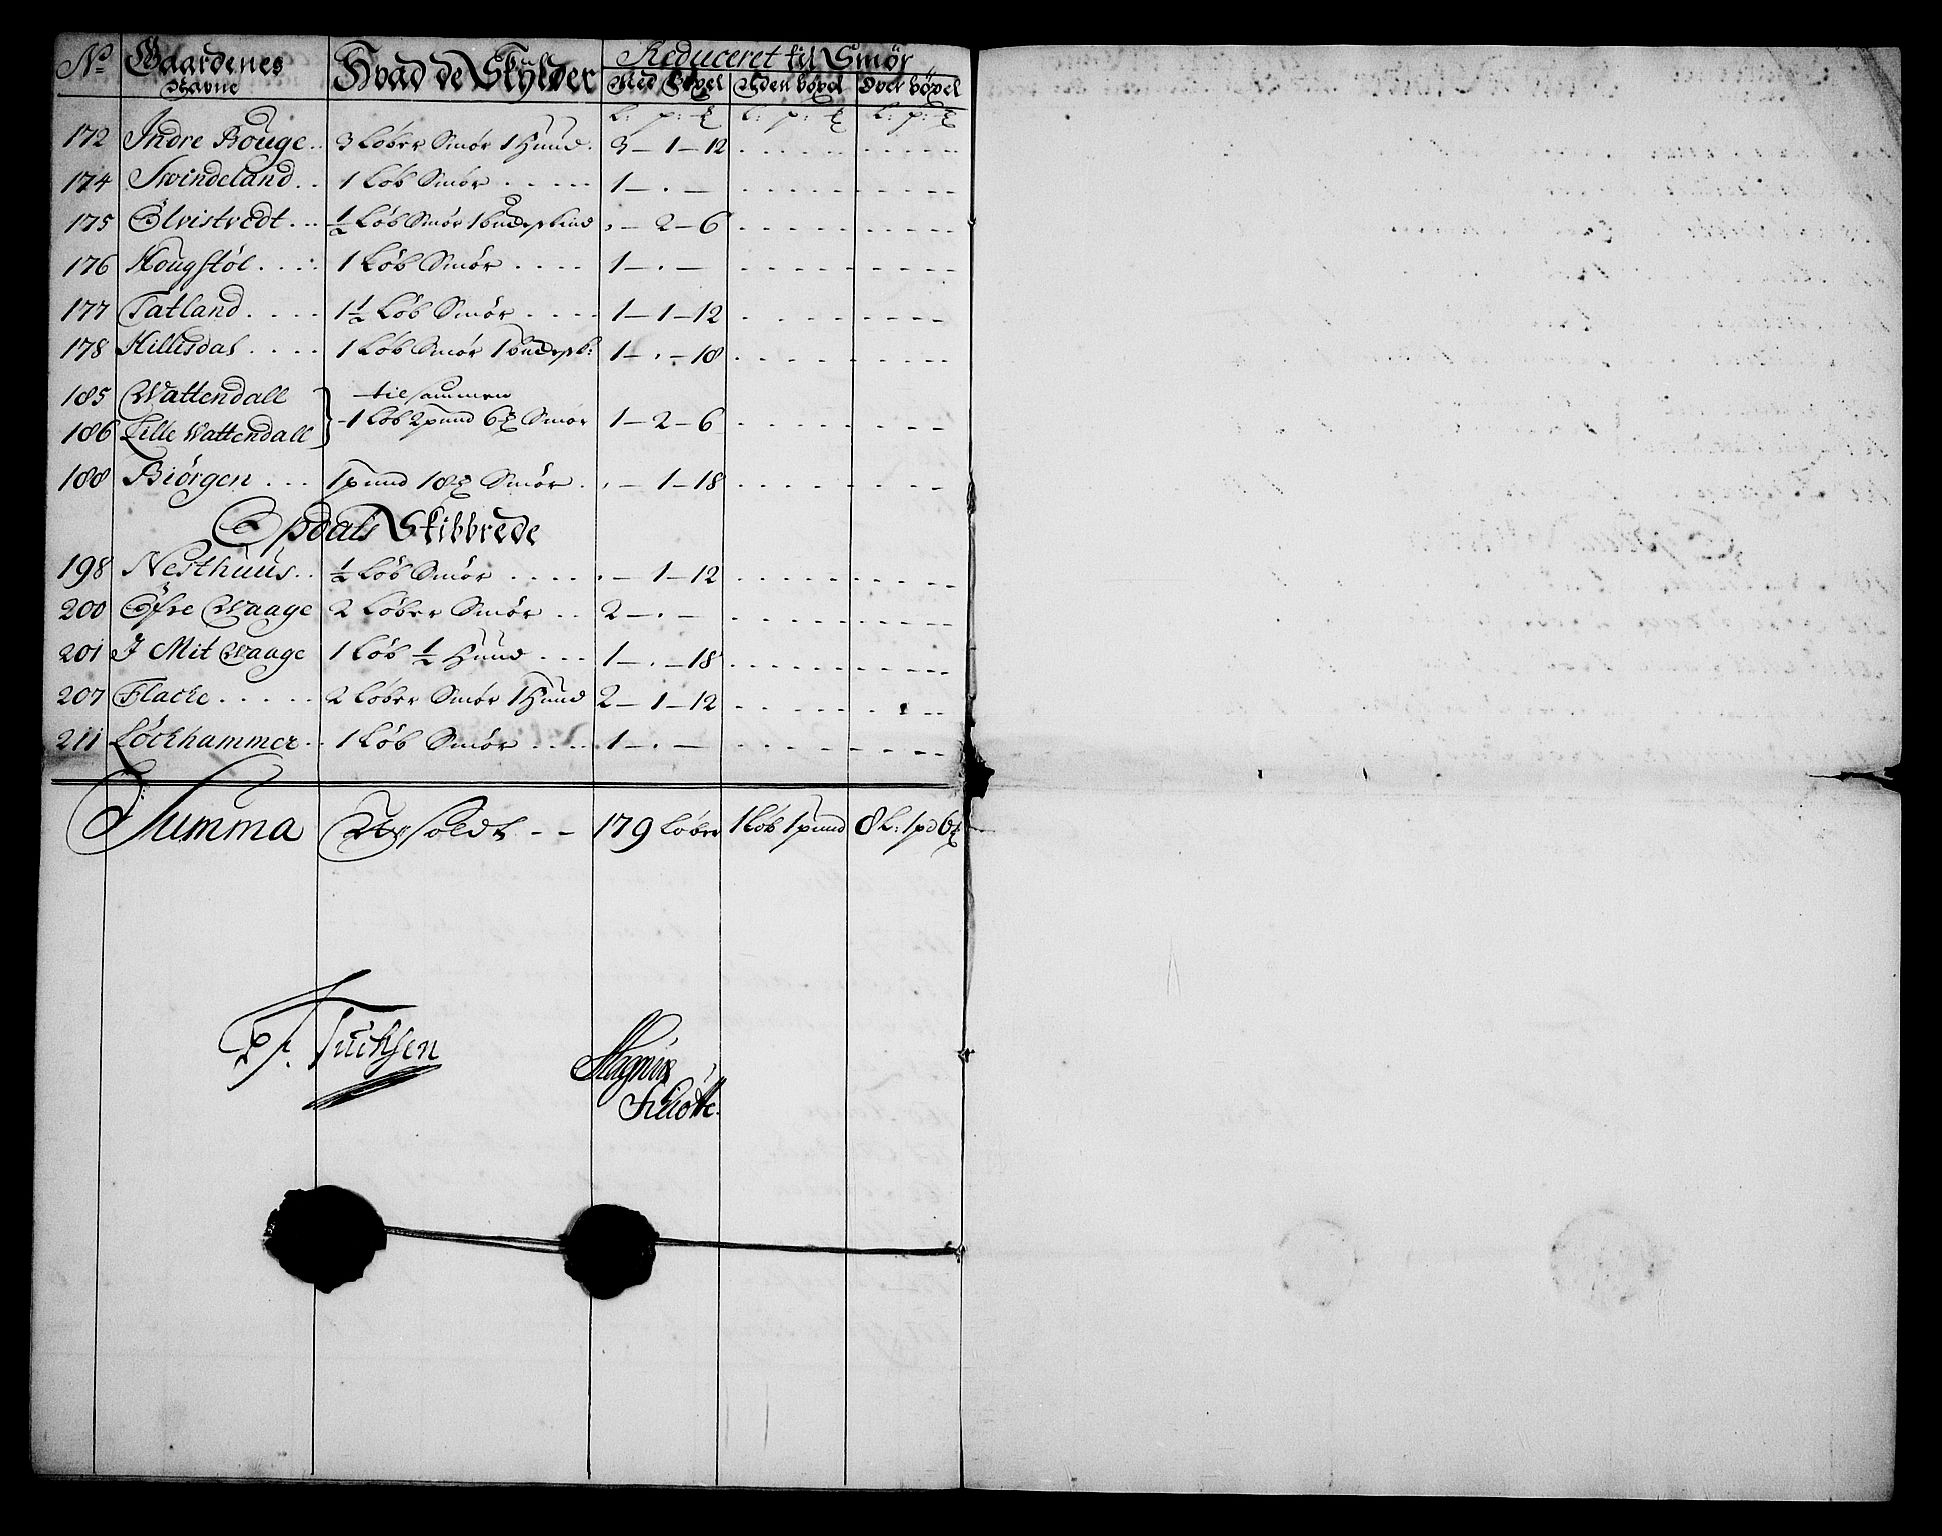 No Gaardenes Navne Hvad de Skylder Reduceret til Smør
Med Böxel Uden böxel Over böxel
L: p: ℔ L: p: ℔ L: p: ℔
172 Indre Bouge.. 3 Løber Smör 1 Huud. 3 – 1 – 12
174 Svindeland.. 1 Løb Smör 1 – . –
175 Ølvistvedt... ½ Løb Smör 1 budskind . – 2 – 6
176 Hougstøl.... 1 Løb Smör 1 – . –
177 Tatland.... 1½ Løb Smör 1 – 1 – 12
178 Hillisdal.... 1 Løb Smör 1 1 – . – 18
185 Wattendall } tilsammen
186 Lille Wattendall } 1 Løb 2 pund 6 ℔ Smör 1 – 2 – 6
188 Biörgen... 1 pund 18 ℔ Smör . – 1 – 18
Opdals Skibbrede
198 Nesthuus.. ½ Løb Smör . – 1 – 12
200 Öfre Waage 2 Løber Smör 2 – . –
201 I Mit Waage 1 Løb ½ Huud 1 – . – 18
207 Flacke..... 2 Løber Smör 1 Huud 2 – 1 – 12
211 Löckhammer.. 1 Løb Smör 1 – . –
Summa 179 Løber 1 Løb 1 pund 8 L: 1 pd 6 ℔
Tuchsen